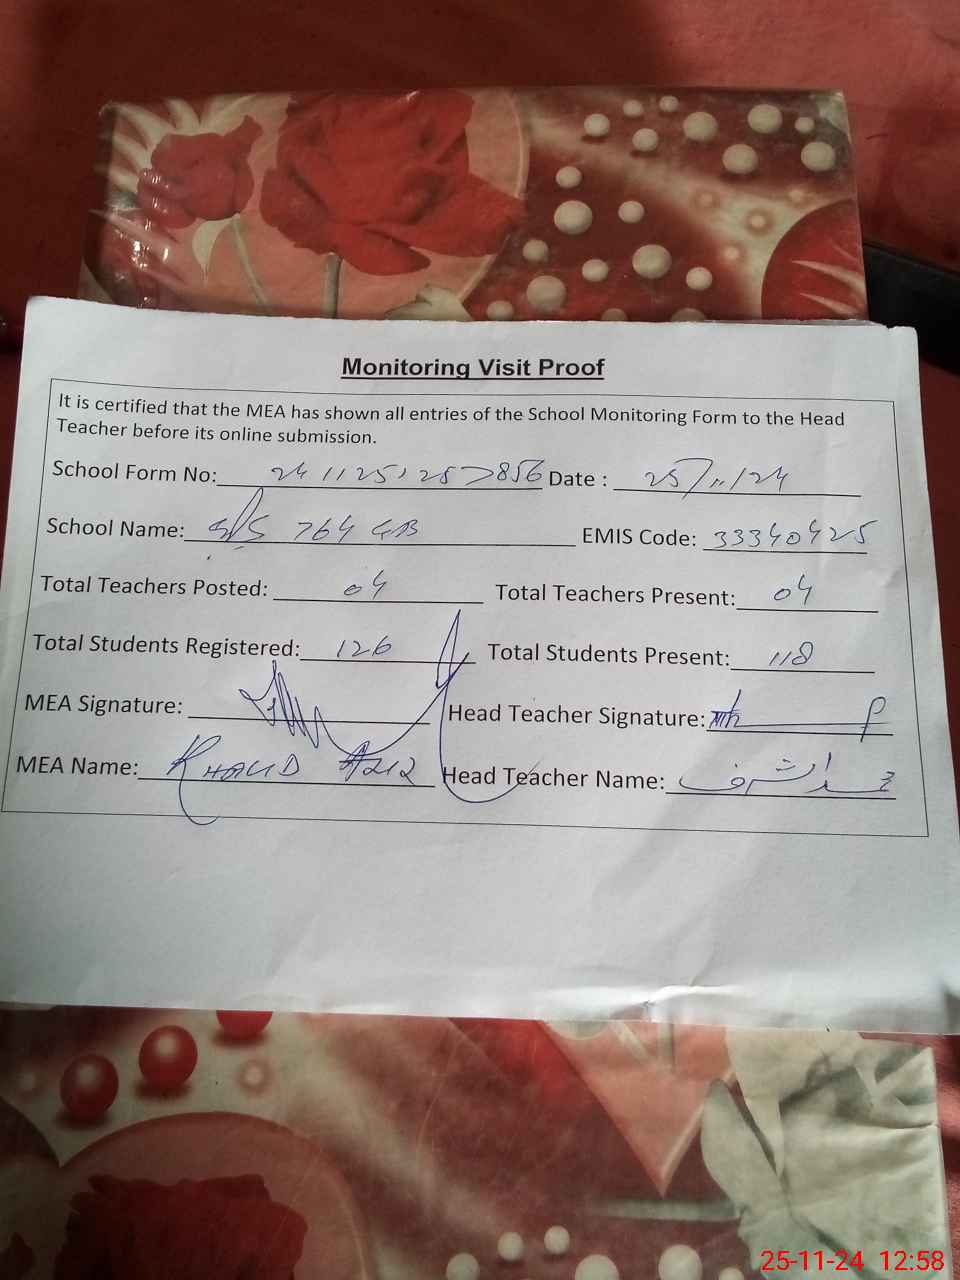 Monitoring Visit Proof
It is certified that the MEA has shown all entries of the School Monitoring Form to the Head
Teacher before its online submission.
School Form No: Date : 25/11/24
School Name: 764 GB EMIS Code: 33340425
Total Teachers Posted: 04 Total Teachers Present: 04
Total Students Registered: 126 Total Students Present: 118
MEA Signature: Head Teacher Signature:
MEA Name: KHALID AZIZ Head Teacher Name: محمد اشرف
25-11-24 12:58